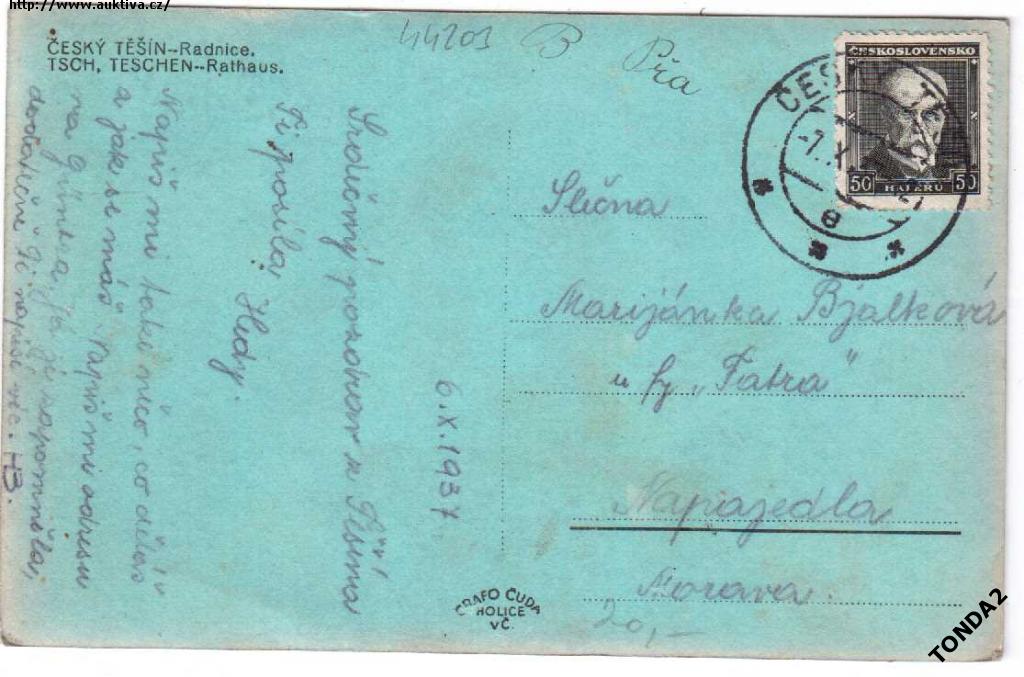 http://www.auktiva.cz/
44203 B Pra
ČESKÝ TĚŠÍN--Radnice.
TSCH, TESCHEN--Rathaus.
Srdečný pozdrav z Těšína
Ti posílá
Hedy.
6.X.1937
Napiš mi také něco, co děláš
a jak se máš. Napiš mi adresu
na Já ji zapomněla,
dodatečně Ti napíši víc. HB.
ČESKOSLOVENSKO
50 HALÉŘŮ 50
ČESK TĚ
-7. X.
B
Slečna
Marijánka Bjalková
u fy „Fatra"
Napajedla
Morava.
GRAFO ČUDA
HOLICE
VČ.
20,-
TONDA2